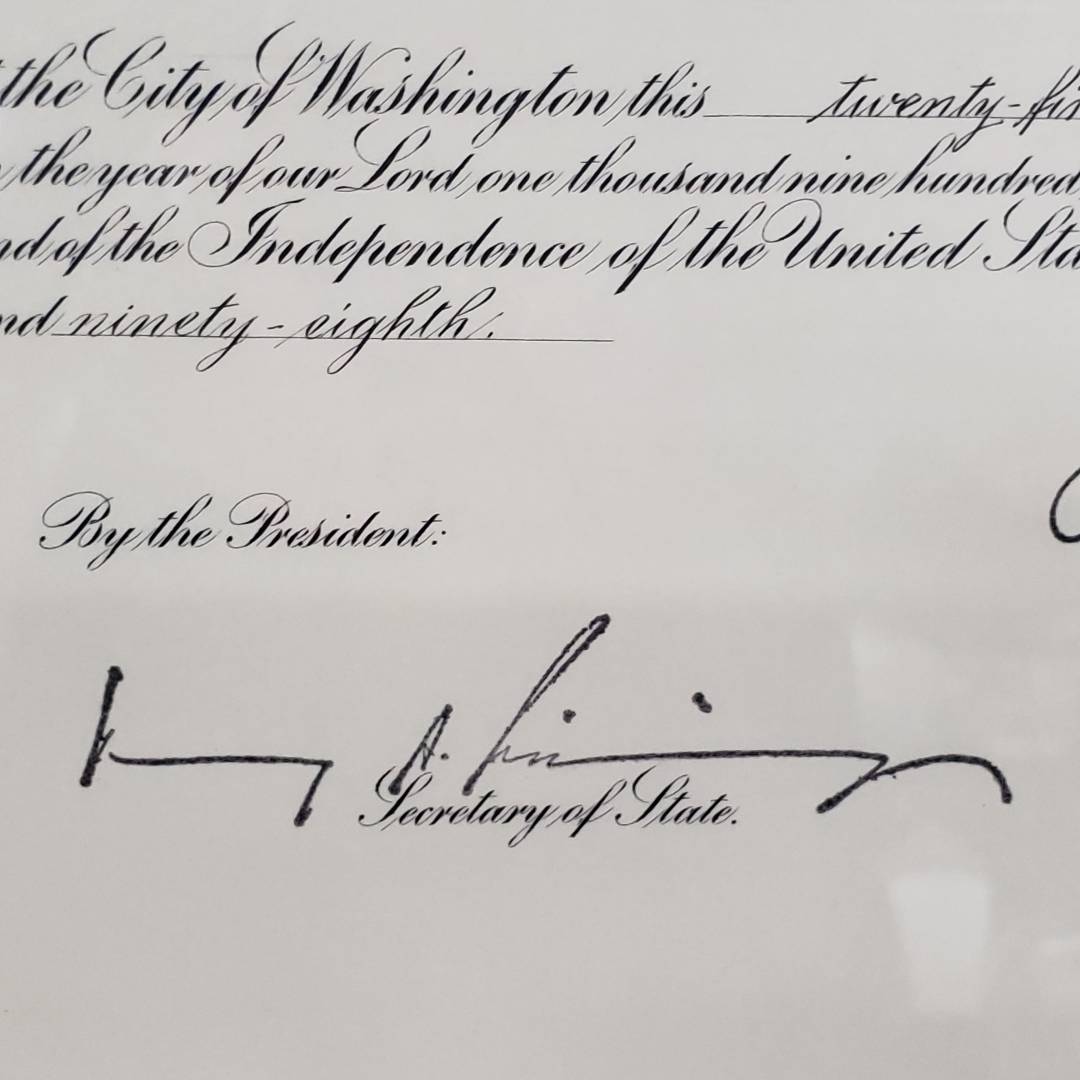 the City of Washington this twenty-fir
the year of our Lord one thousand nine hundred
nd of the Independence of the United Sta
nd ninety-eighth.
By the President:
Henry A. Kissinger
Secretary of State.